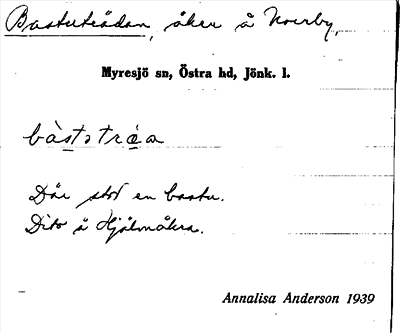 Bastuträdan, åker å Norrby,
Myresjö sn, Östra hd, Jönk. l.
bàstətrɷa
Där stod en bastu.
Dito å Hjälmåkra.
Annalisa Anderson 1939